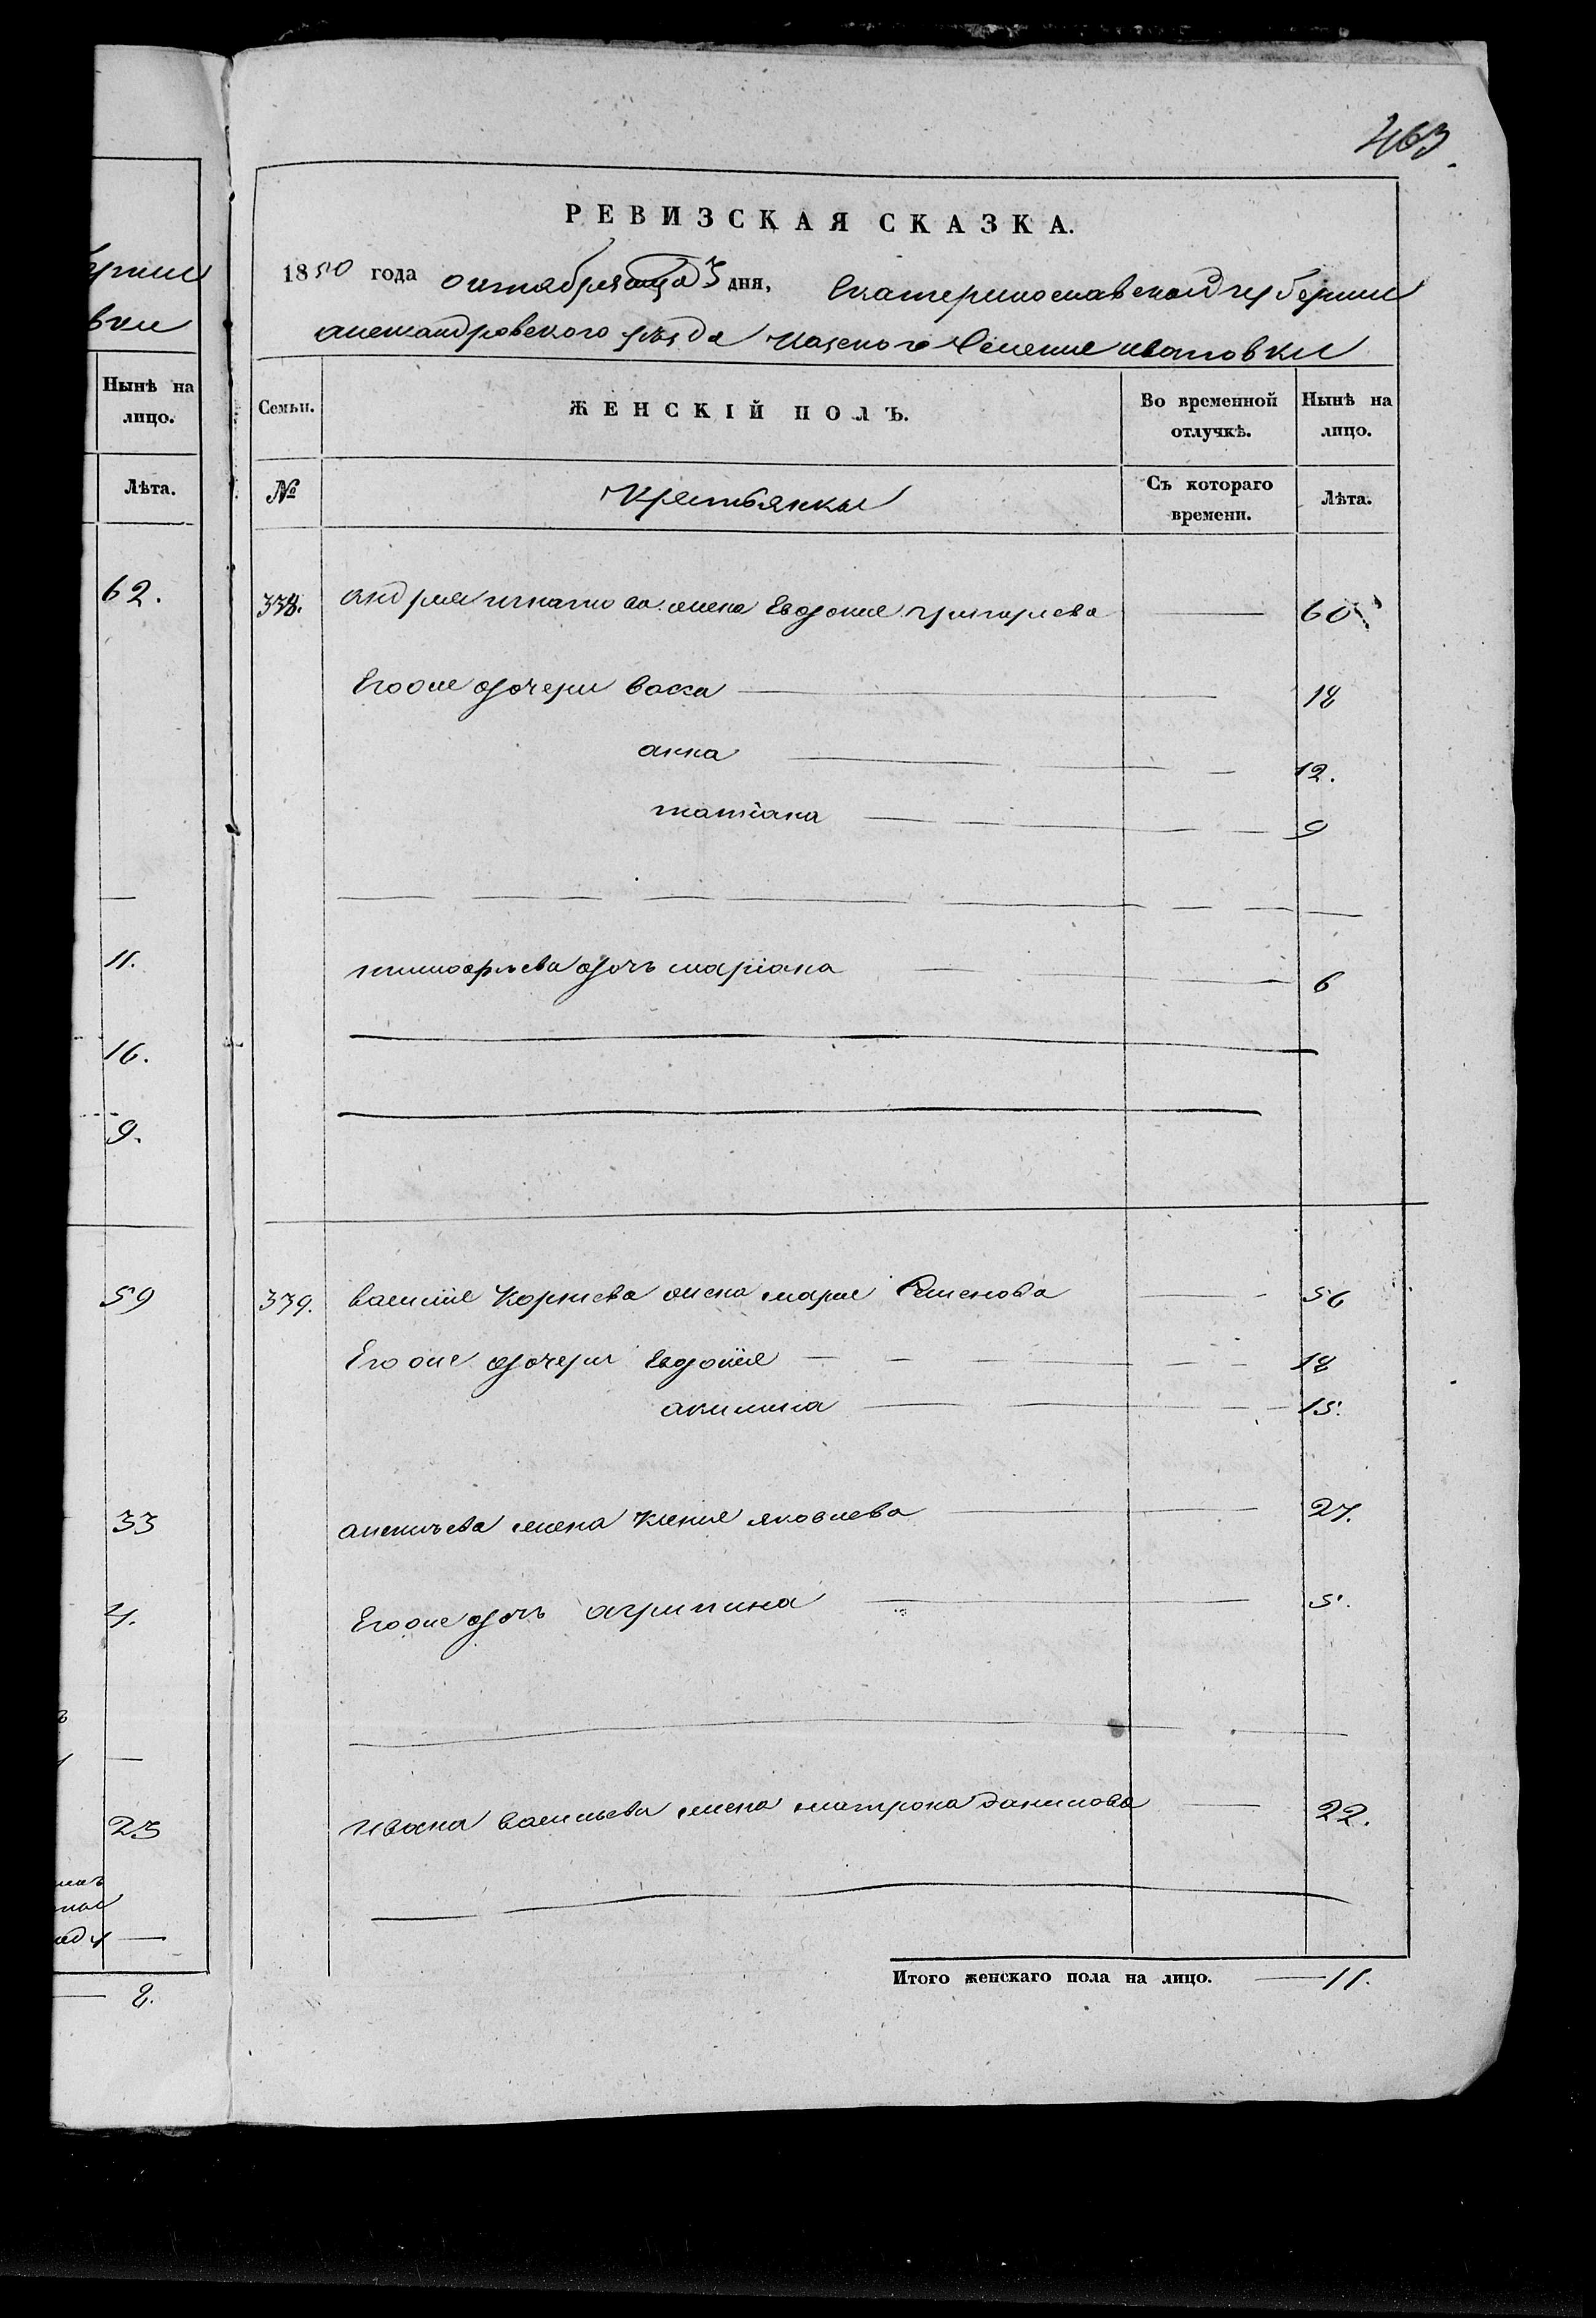 463
РЕВИЗСКАЯ СКАЗКА.
1850 года октября месяца 3 дня, Екатеринославской губернии
александровского уезда казеного Селение ивановки
Нынѣ на лицо.
Лѣта.
62.
—
11.
16.
9.
59
33
4.
—
23
—
2.
Семьи. ЖЕНСКІЙ ПОЛЪ. Во временной отлучкѣ. Нынѣ на лицо.
№ Крестьянки Съ котораго времени. Лѣта.
338. андрея игнатова жена Евдокие григориева — 60
Егоже дочери васса — 18
анна — 12.
татіана — 9
тимофѣева дочъ маріана — 6
339. василие Корнѣева жена марие Семенова — 56
Егоже дочери Евдокіе — 18
акилина — 15.
алексѣева жена Ксение яковлева — 27.
Егоже дочъ агрипина — 5.
ивана васильева жена матрона данилова — 22.
Итого женскаго пола на лицо. — 11.